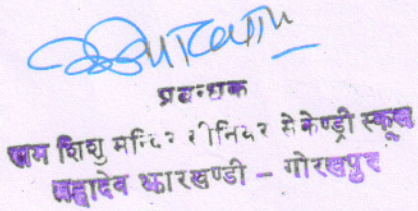 प्रबन्धक
शिशु मन्दिर सीनियर सेकेण्ड्री स्कूल
महादेव झारखण्डी – गोरखपुर